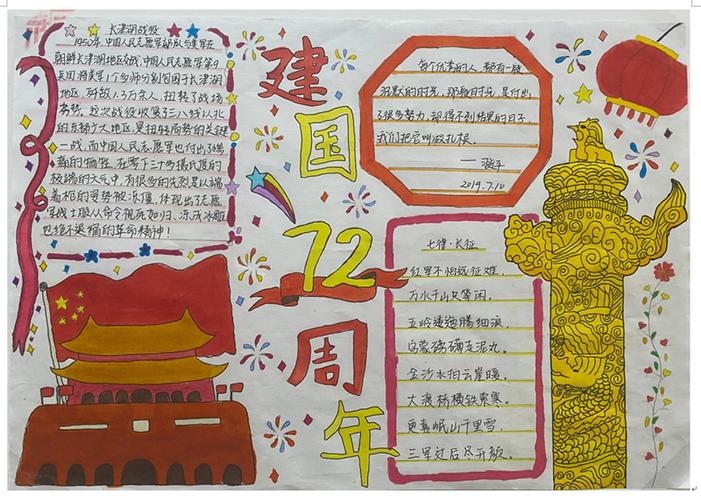 长津湖战役
1950年,中国人民志愿军部队与美军在
朝鲜长津湖地区交战,中国人民志愿军第9
兵团将美军1个多师分割包围于长津湖
地区,歼敌1.3万余人,扭转了战场
态势,这次战役收复了三八线以北
的东部广大地区,是扭转局势的关键
一战,而中国人民志愿军也付出
的牺牲,在零下三十多摄氏度的
极端的天气中,有很多的先烈是以端
着枪的姿势被冻僵,体现出了志愿
军战士服从命令视死如归,冻成冰雕
也绝不退缩的革命精神!
建国72周年
每个优秀的人,都有一段
沉默的时光,那段时光,是付出
了很多努力,却得不到结果的日子,
我们把它叫做扎根。
2019.7.10
七律·长征
红军不怕远征难,
万水千山只等闲。
五岭逶迤腾细浪,
乌蒙磅礴走泥丸。
金沙水拍云崖暖,
大渡桥横铁索寒。
更喜岷山千里雪,
三军过后尽开颜。